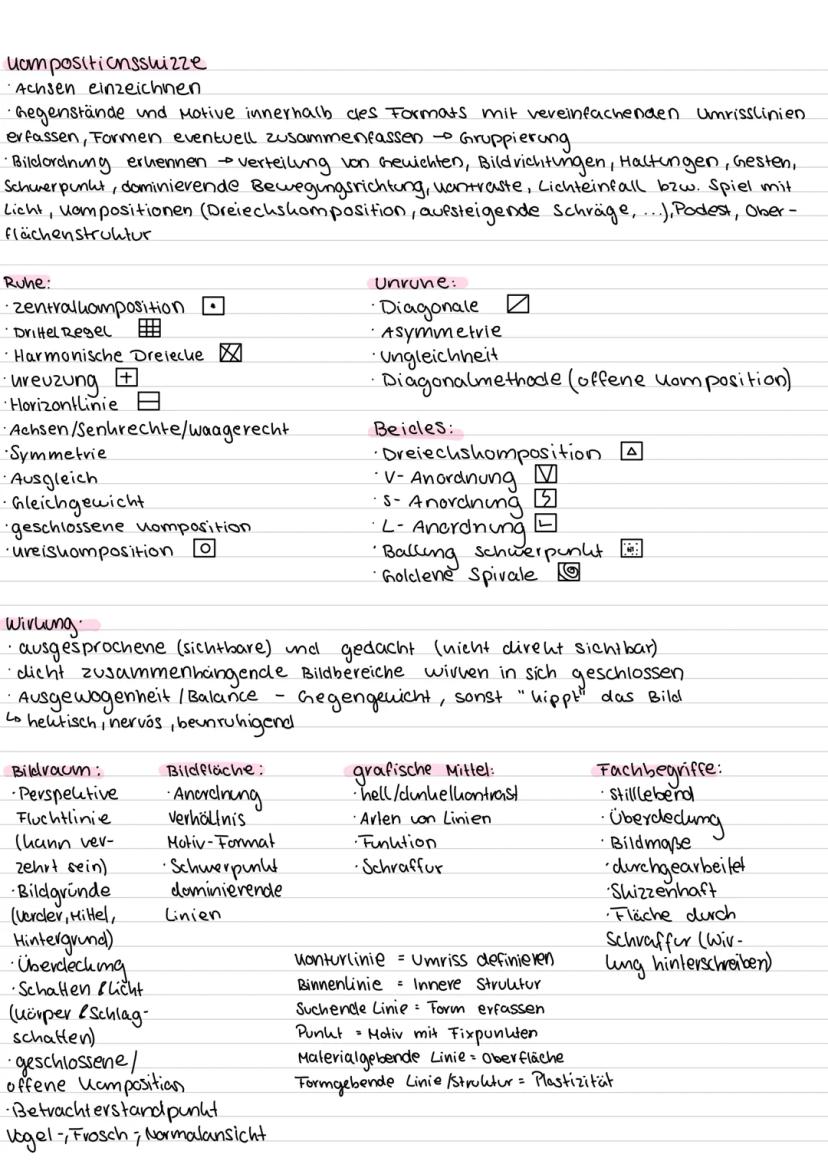 Kompositionsskizze
· Achsen einzeichnen
· Gegenstände und Motive innerhalb des Formats mit vereinfachenden Umrisslinien
erfassen, Formen eventuell zusammenfassen → Gruppierung
· Bildordnung erkennen → Verteilung von Gewichten, Bildrichtungen, Haltungen, Gesten,
Schwerpunkt, dominierende Bewegungsrichtung, Kontraste, Lichteinfall bzw. Spiel mit
Licht, Kompositionen (Dreieckskomposition, aufsteigende Schräge, ...), Podest, Ober-
flächenstruktur
Ruhe:
· Zentralkomposition
· Drittel Regel
· Harmonische Dreiecke
· Kreuzung
· Horizontlinie
· Achsen/Senkrechte/waagerecht
· Symmetrie
· Ausgleich
· Gleichgewicht
· geschlossene Komposition
· Kreiskomposition
Unruhe:
· Diagonale
· Asymmetrie
· Ungleichheit
· Diagonalmethode (offene Komposition)
Beides:
· Dreieckskomposition
· V- Anordnung
· S- Anordnung
· L- Anordnung
· Ballung Schwerpunkt
· Goldene Spirale
Wirkung:
· ausgesprochene (sichtbare) und gedacht (nicht direkt sichtbar)
· dicht zusammenhängende Bildbereiche wirken in sich geschlossen
· Ausgewogenheit / Balance - Gegengewicht, sonst "kippt" das Bild
↳ hektisch, nervös, beunruhigend
Bildraum:
· Perspektive
Fluchtlinie
(kann ver-
zehrt sein)
· Bildgründe
(Vorder, Mittel,
Hintergrund)
· Überdeckung
· Schatten & Licht
(Körper & Schlag-
schatten)
· geschlossene/
offene Komposition
· Betrachterstandpunkt
Vogel-, Frosch-, Normalansicht
Bildfläche:
· Anordnung
Verhältnis
Motiv-Format
· Schwerpunkt
dominierende
Linien
grafische Mittel:
· hell/dunkelkontrast
· Arten von Linien
· Funktion
· Schraffur
Fachbegriffe:
· Stilllebend
· Überdeckung
· Bildmaße
· durchgearbeitet
· Skizzenhaft
· Fläche durch
Schraffur (Wir-
kung hinterschreiben)
Konturlinie = Umriss definieren
Binnenlinie = Innere Struktur
Suchende Linie = Form erfassen
Punkt = Motiv mit Fixpunkten
Materialgebende Linie = Oberfläche
Formgebende Linie/Struktur = Plastizität